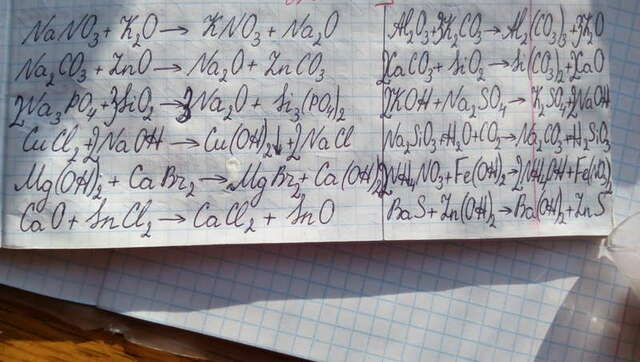 NaNO₃ + K₂O → KNO₃ + Na₂O
Na₂CO₃ + ZnO → Na₂O + ZnCO₃
2Na₃PO₄ + 3SiO₂ → 3Na₂O + Si₃(PO₄)₂
CuCl₂ + 2NaOH → Cu(OH)₂↓ + 2NaCl
Mg(OH)₂ + CaBr₂ → MgBr₂ + Ca(OH)₂
CaO + SnCl₂ → CaCl₂ + SnO
Al₂O₃ + 3K₂CO₃ → Al₂(CO₃)₃ + 3K₂O
2CaCO₃ + SiO₂ → Si(CO₃)₂ + 2CaO
2KOH + Na₂SO₄ → K₂SO₄ + 2NaOH
Na₂SiO₃ + H₂O + CO₂ → Na₂CO₃ + H₂SiO₃
2NH₄NO₃ + Fe(OH)₂ → 2NH₄OH + Fe(NO₃)₂
BaS + Zn(OH)₂ → Ba(OH)₂ + ZnS